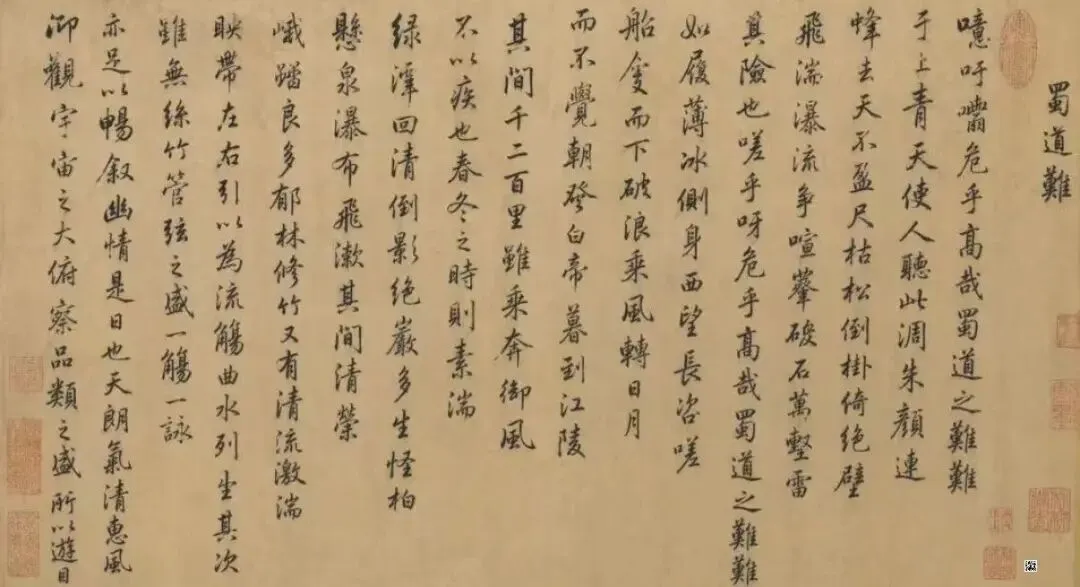 蜀道難
噫吁危乎高哉蜀道之難難
于上青天使人聽此凋朱顏連
峰去天不盈尺枯松倒掛倚絕壁
飛湍瀑流爭喧石萬壑雷
其險也嗟乎呀危乎高哉蜀道之難難
如履薄冰側身西望長咨嗟
船而下破浪乘風轉日月
而不覺朝發白帝暮到江陵
其間千二百里雖乘奔御風
不以疾也春冬之時則素湍
緑潭回清倒影絶巖多生怪柏
懸泉瀑布飛漱其間清榮
峨良多郁林修竹又有清流激湍
映帶左右引以為流觴曲水列坐其次
雖無絲竹管弦之盛一觴一詠
亦足以暢叙幽情是日也天朗氣清惠風
仰觀宇宙之大俯察品類之盛所以遊目